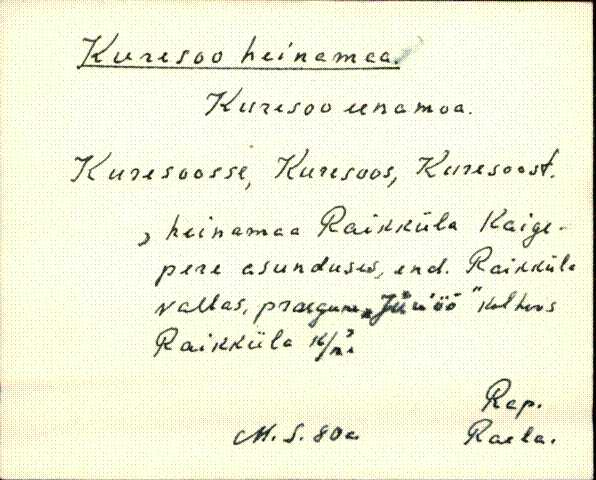 Kuresoo heinamaa.
Kuresoo einamoa.
Kuresoosse, Kuresoos, Kuresoost.
, heinamaa Raikküla Kaige-
pere asunduses, end. Raikküla
vallas, praegune „Jüriöö" kolhoos
Raikküla k/n.
Rap.
M. S. 80a Raela.